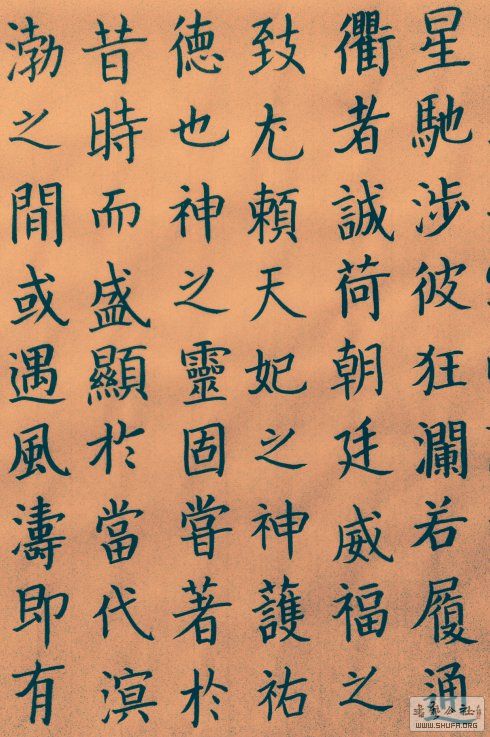 星馳涉彼狂瀾若履通
衢者誠荷朝廷威福之
致尤頼天妃之神護祐
德也神之靈固嘗著於
昔時而盛顯於當代溟
渤之間或遇風濤即有
WWW.SHUFA.ORG